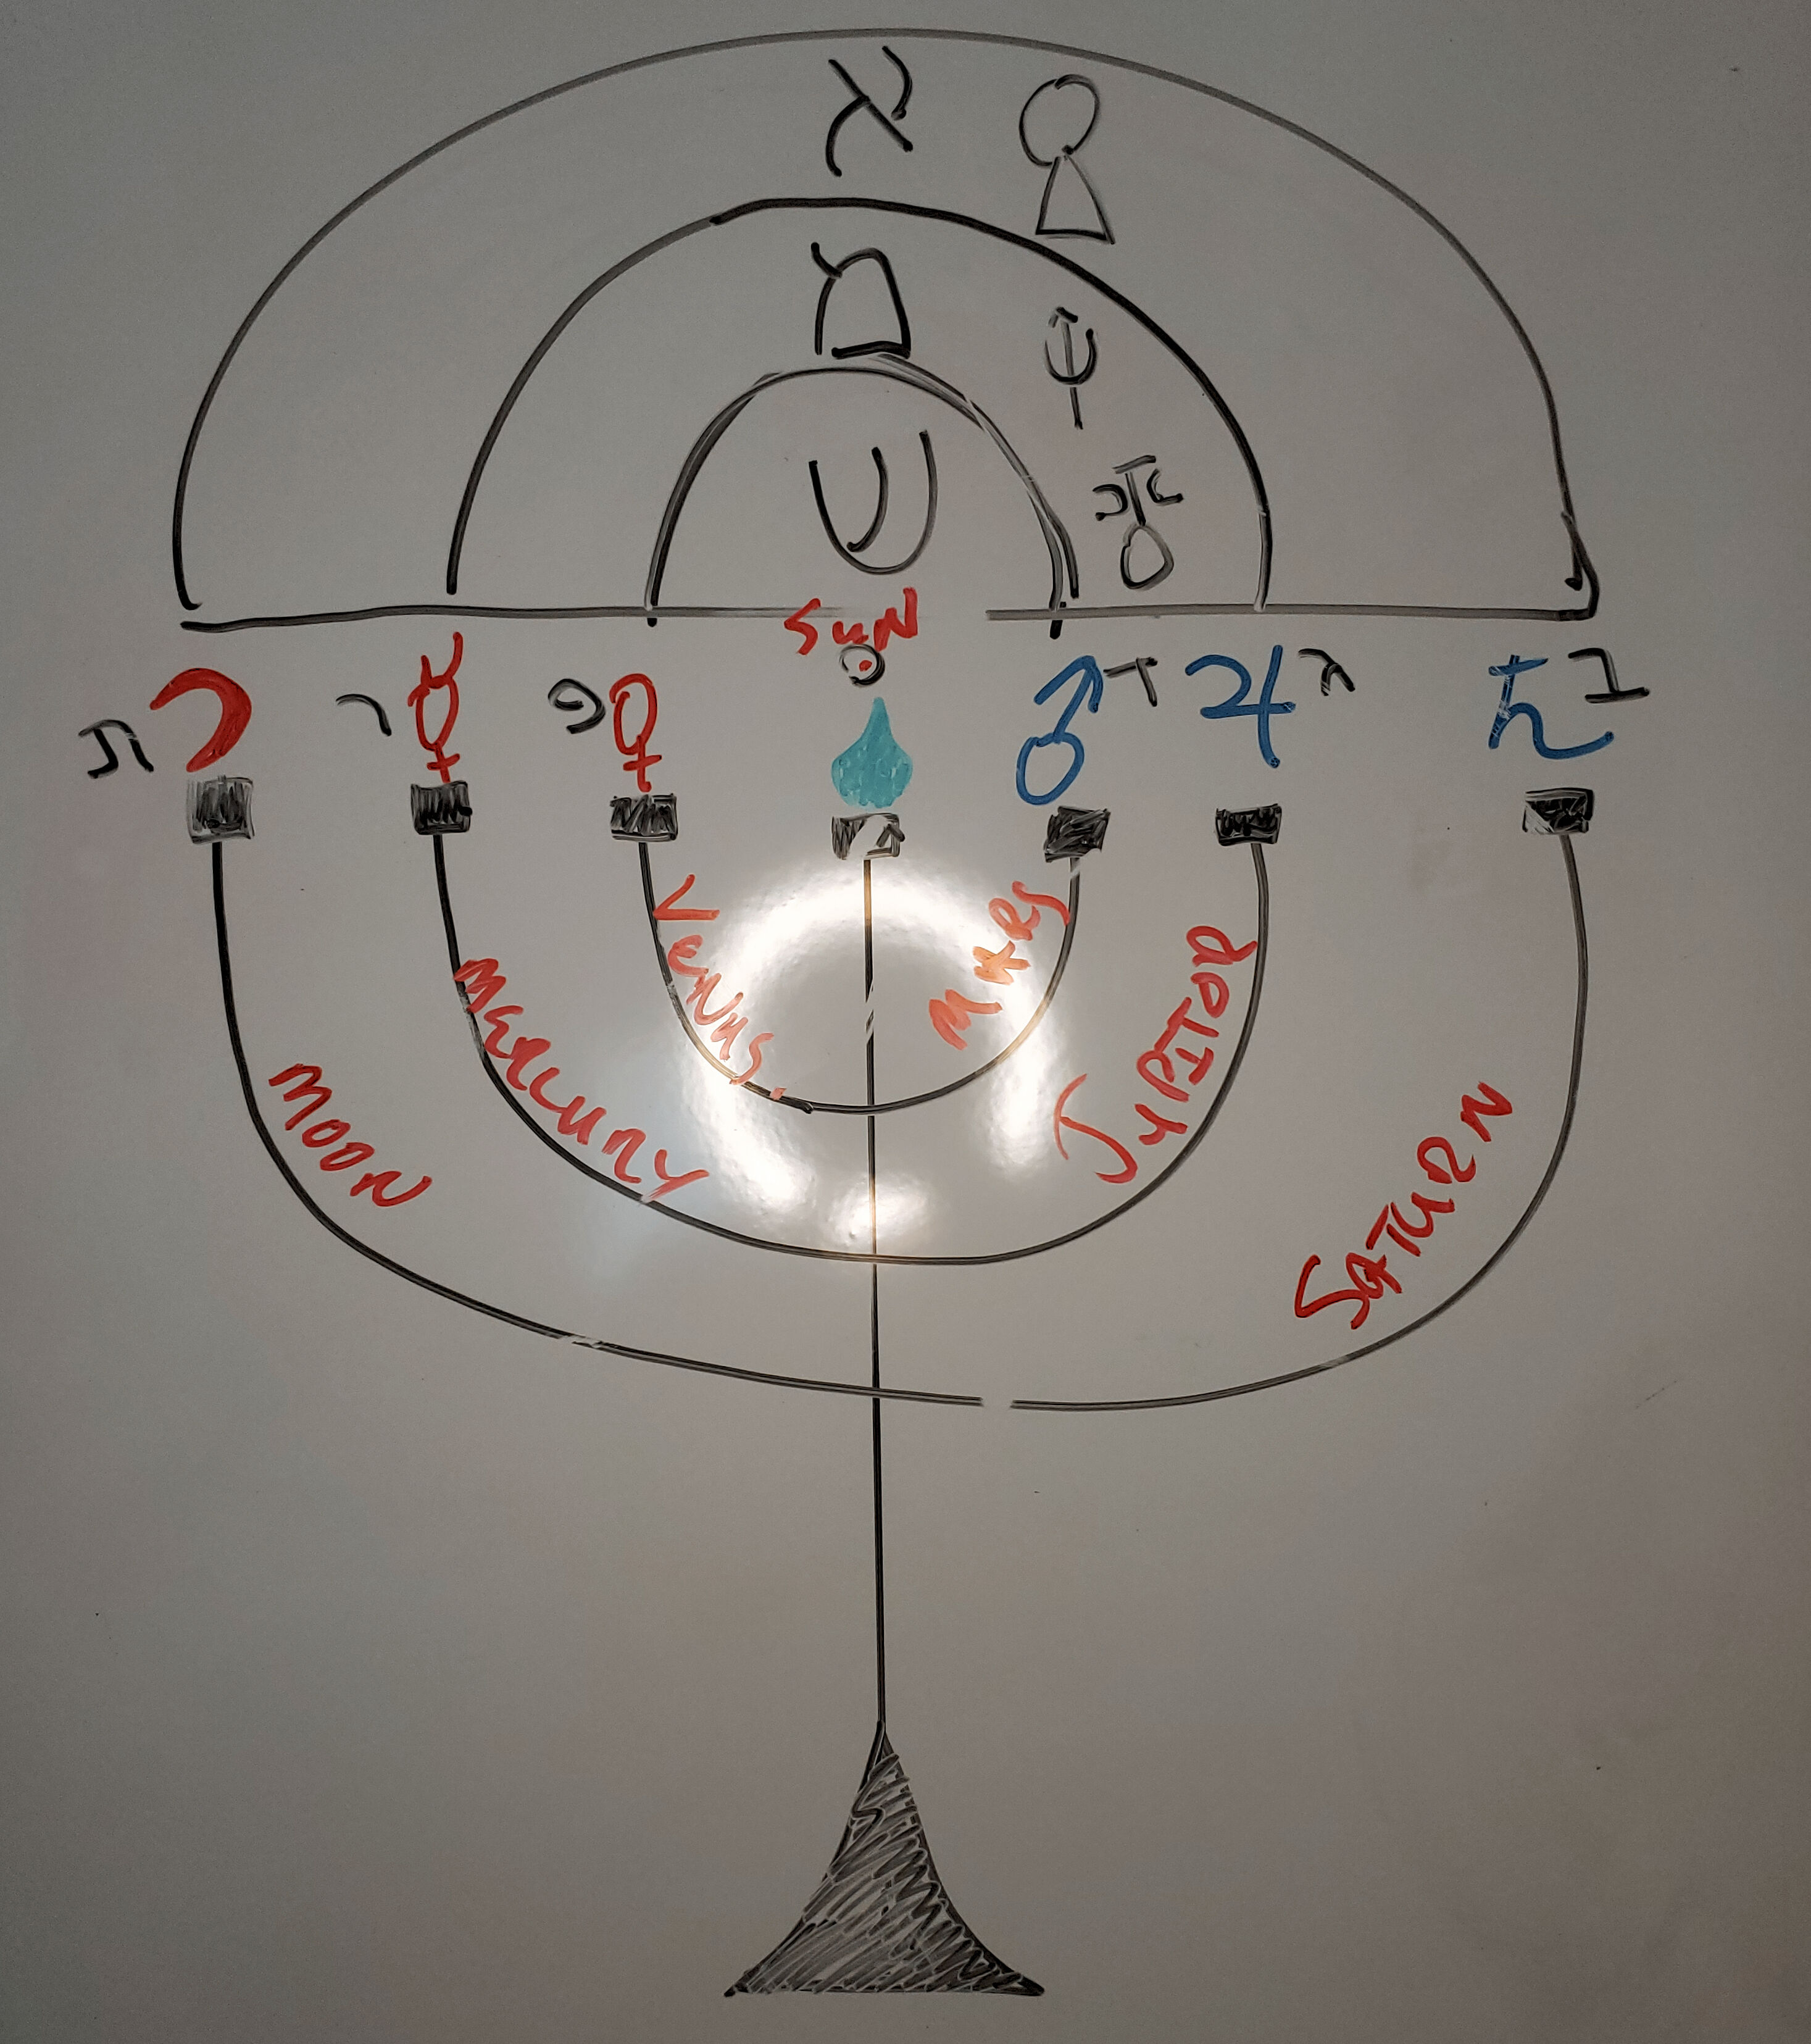 א
מ
♆
ש
♅
SuN
☉
ת ☽ ר ☿ פ ♀ ♂ ד ♃ ג ♄ ב
VeNus.
MARS
MeRcuRY
JuPITOR
MOON
SATuRN